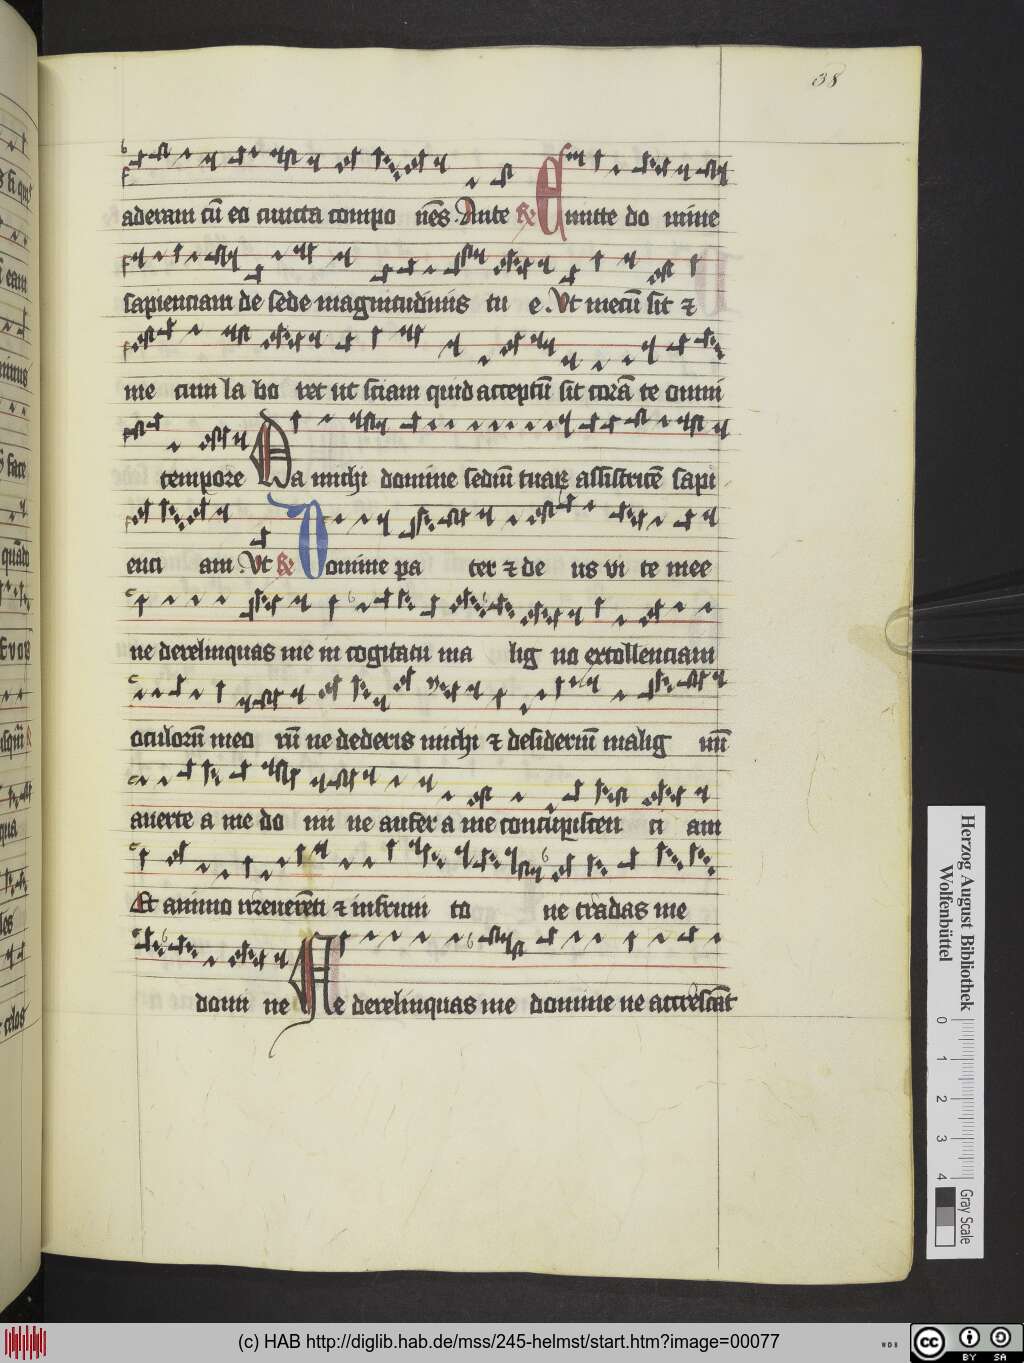 38
aderam cū eo cuncta compo nēs. Ante R Emitte do mine
sapienciam de sede magnitudinis tu e. Vt mecū sit ⁊
me cum la bo ret ut sciam quid acceptū sit corā te omni
tempore Da michi domine sediū tuaꝝ assistricē sapi
enci am Vt R Domine pa ter ⁊ de us vi te mee
ne derelinquas me in cogitatu ma lig no extollenciam
oculorū meo rū ne dederis michi ⁊ desideriū malig nū
auerte a me do mi ne aufer a me concupiscen ci am
Et animo irreuerēti ⁊ infruni to ne tradas me
domi ne Ne derelinquas me domine ne accrescāt
Herzog August Bibliothek
Wolfenbüttel
0 1 2 3 4
Gray Scale
(c) HAB http://diglib.hab.de/mss/245-helmst/start.htm?image=00077
WDB
cc BY SA